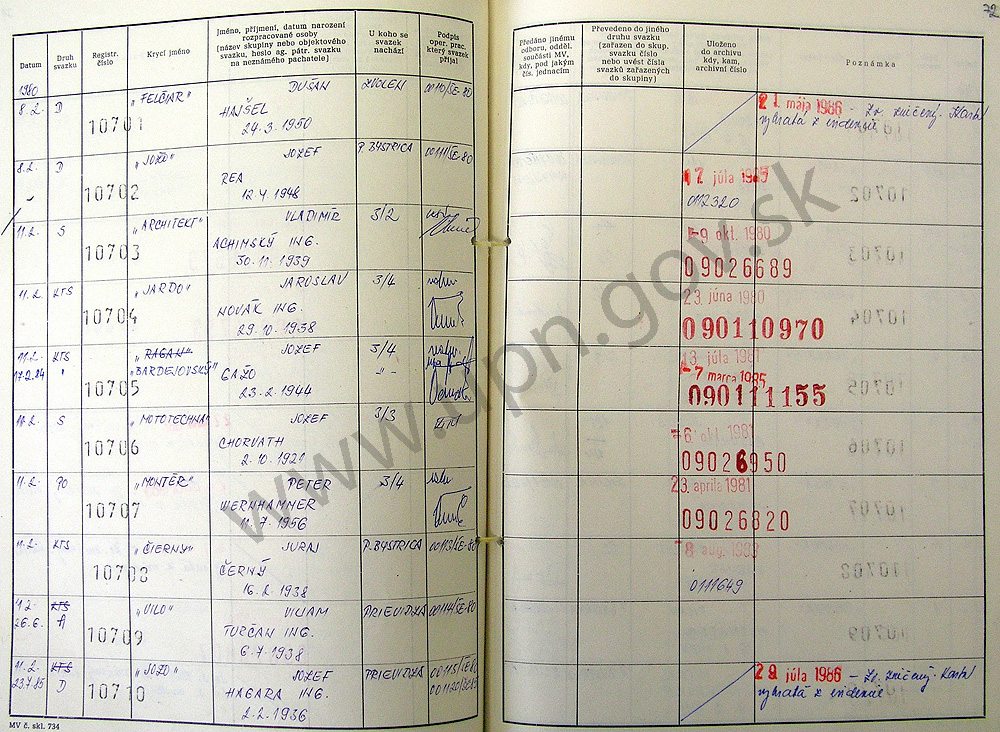 72
Datum
Druh svazku
Registr. číslo
Krycí jméno
Jméno, příjmení, datum narození
rozpracované osoby
(název skupiny nebo objektového
svazku, heslo ag. pátr. svazku
na neznámého pachatele)
U koho se
svazek
nachází
Podpis
oper. prac.
který svazek
přijal
Předáno jinému
odboru, odděl.
součásti MV,
kdy, pod jakým
čís. jednacím
Převedeno do jiného
druhu svazku
(zařazen do skup.
svazku číslo
nebo uvést čísla
svazků zařazených
do skupiny)
Uloženo
do archivu
kdy, kam,
archivní číslo
Poznámka
1980
8.2. D 10701 „FELČIAR" DUŠAN ZVOLEN 0010/SE-80
HAJŠEL
24.3.1950
21. mája 1986 - Zv. zničený. Karta
vybratá z evidencie
8.2. D 10702 „JOŽO" JOZEF P. BYSTRICA 00111/SE-80
REA
12.4.1948
17 júla
012320
11.2. S 10703 „ARCHITEKT" VLADIMÍR 3/2
ACHIMSKÝ ING.
30.11.1939
-9 okt. 1980
09026689
11.2. KTS 10704 „JARDO" JAROSLAV 3/4
NOVÁK ING.
29.10.1938
23. júna 1980
090110970
11.2. KTS 10705 „RAGAN" JOZEF 3/4
17.2.84 " „BARDEJOVSKÝ" GAŽO "-
23.2.1944
13. júla 1981
-7 marca 1985
090111155
11.2. S 10706 „MOTOTECHNA" JOZEF 3/3
CHORVATH
2.10.1921
-6 okt. 1981
09026950
11.2. PO 10707 „MONTÉR" PETER 3/4
WERNHAMMER
11.7.1956
23. apríla 1981
09026820
11.2. KTS 10708 „ČIERNY" JURAJ P. BYSTRICA 00113/SE-80
ČERNÝ
16.2.1938
18 aug.
0111649
KTS 10709 „VILO" VILIAM PRIEVIDZA 00114/SE-80
26.6. A TURČAN ING.
6.7.1938
11.2. KTS 10710 „JOŽO" JOZEF PRIEVIDZA 00115/SE-80
23.7.85 D HAGARA ING.
2.2.1936
29. júla 1986 - Zv. zničený. Karta
vybratá z evidencie
MV č. skl. 734
www.upn.gov.sk